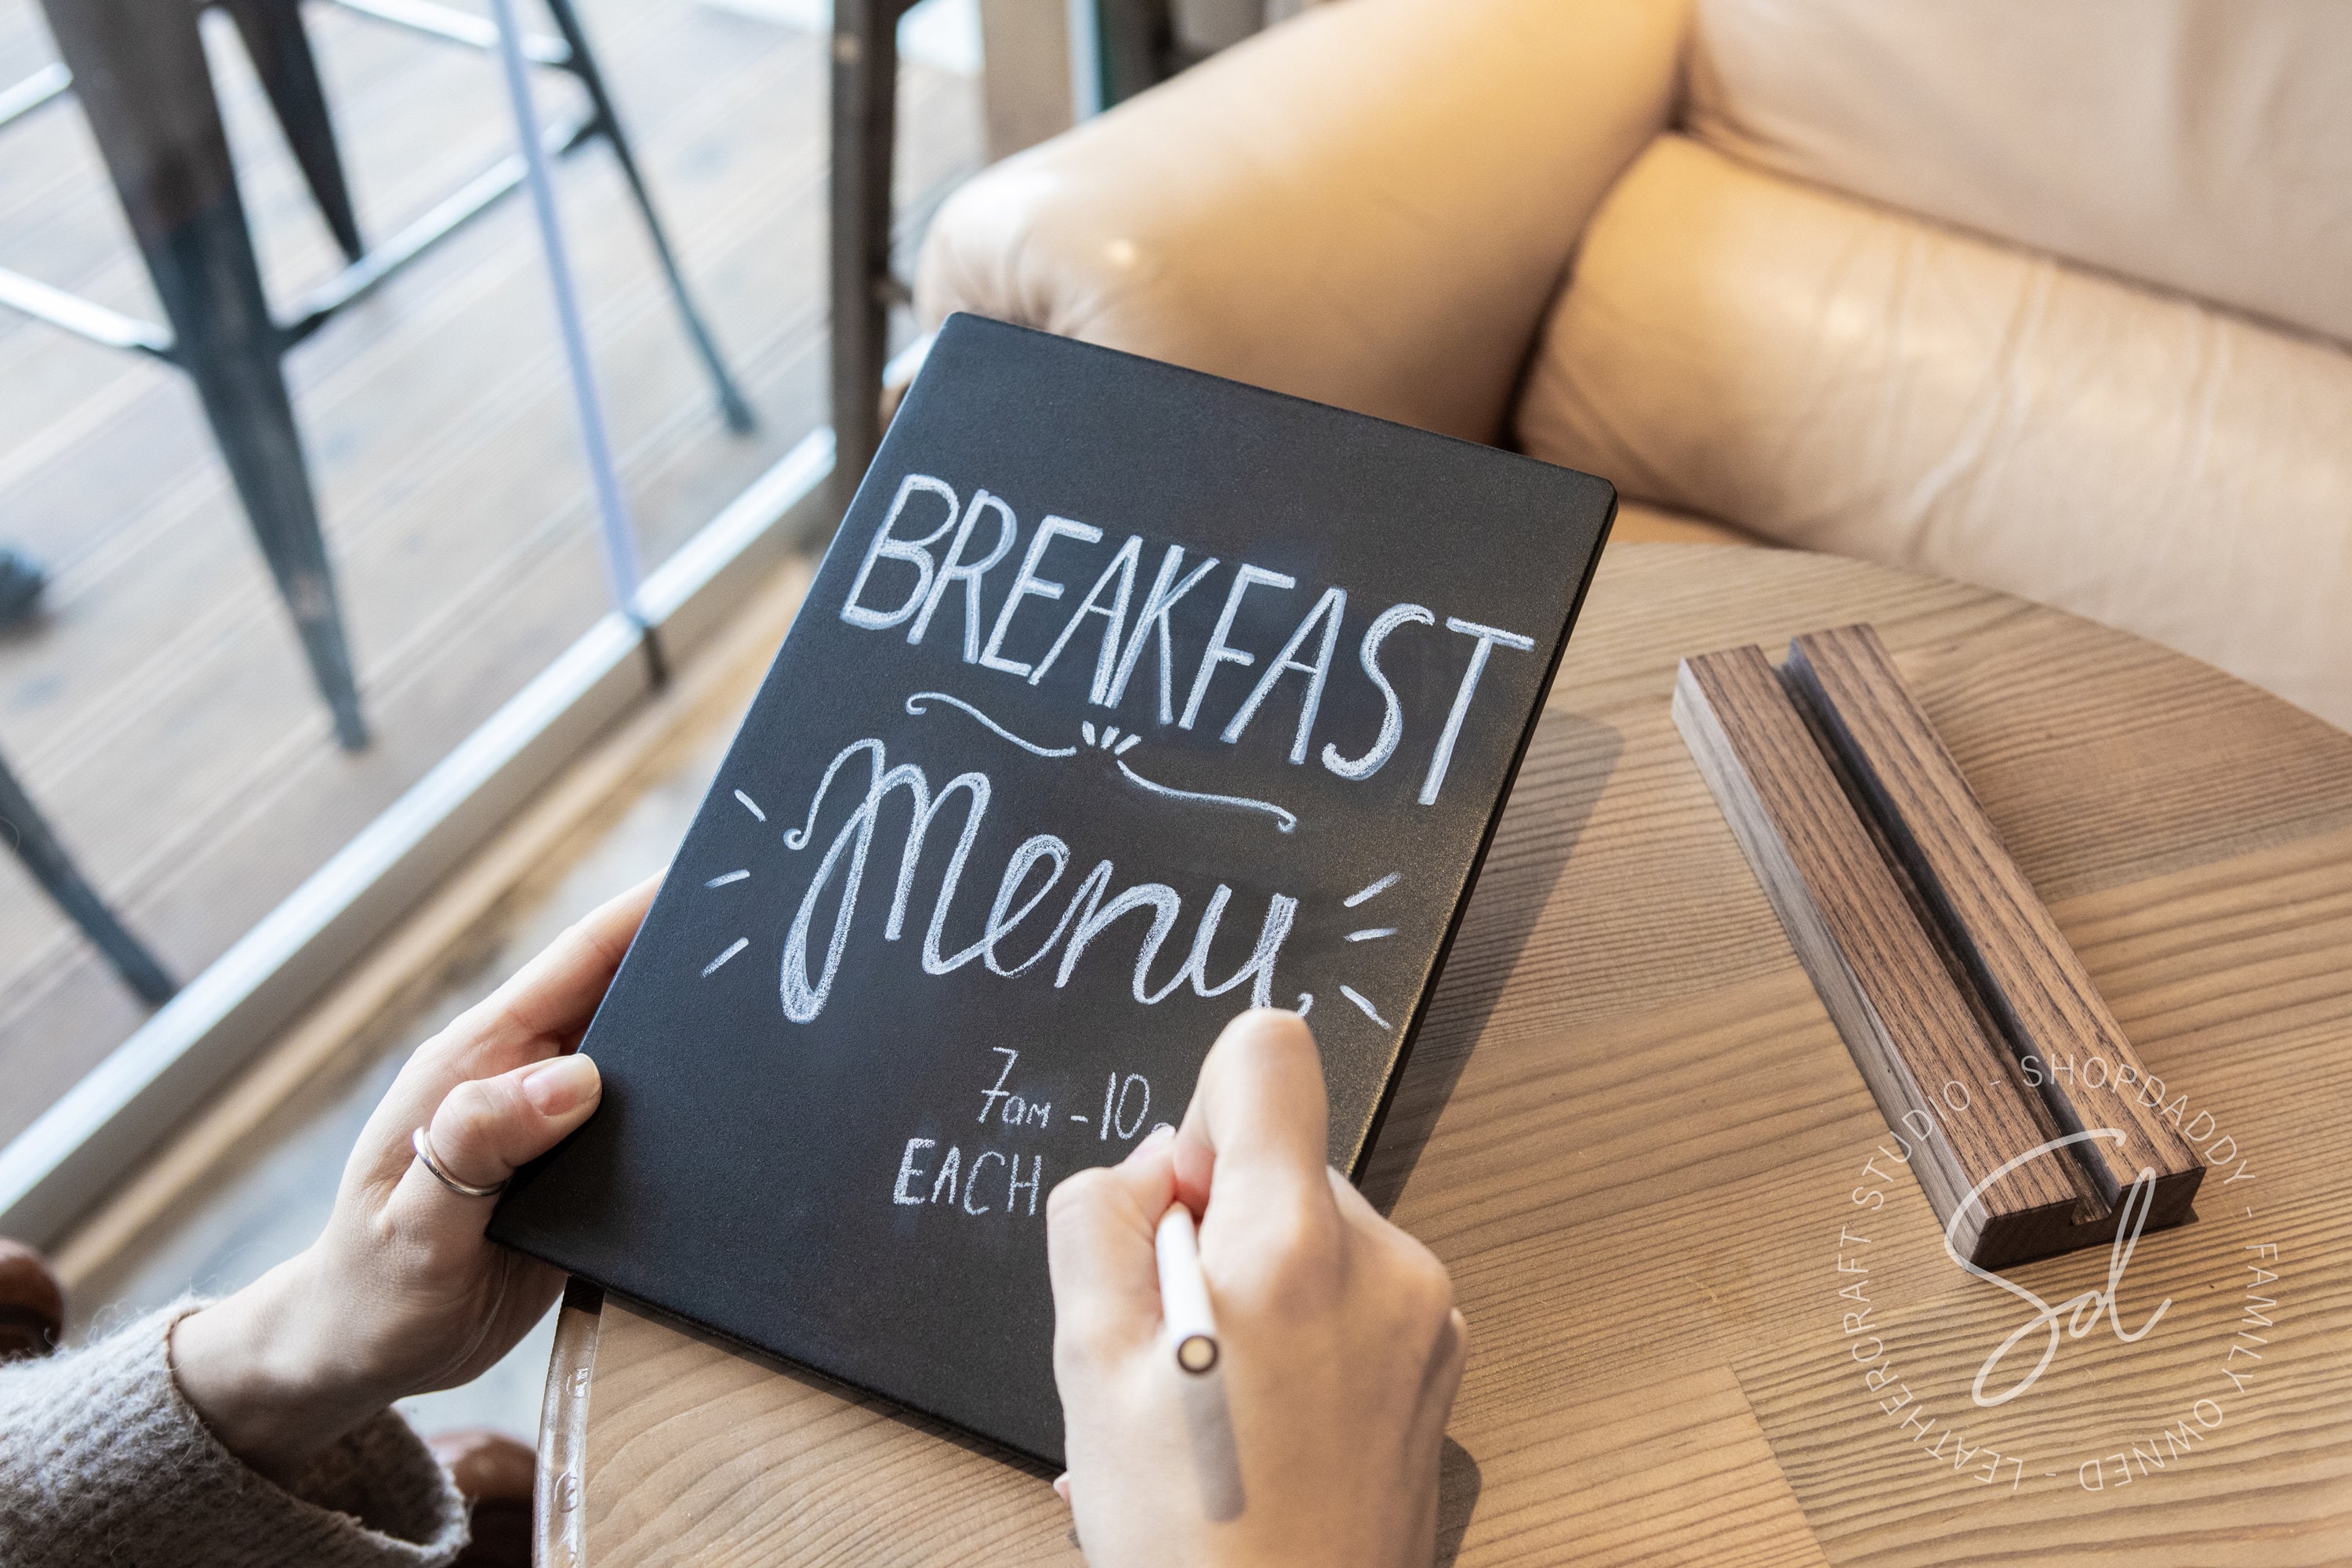 BREAKFAST
Menu
7am - 10
EACH
LEATHERCRAFT STUDIO - SHOPDADDY - FAMILY OWNED -
Sd